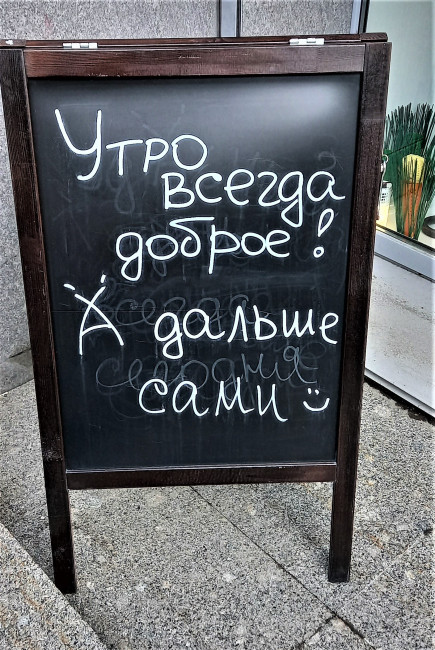 Утро
всегда
доброе!
А дальше
сами